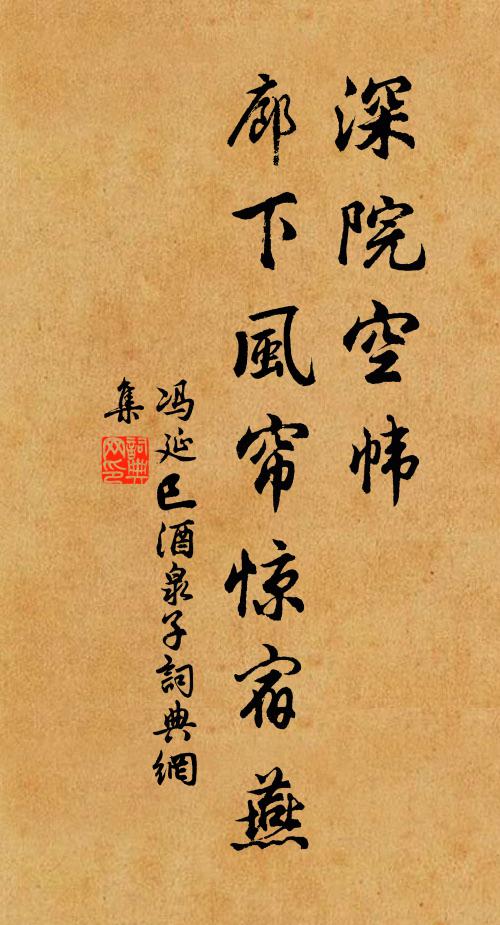 深院空帏
廊下風帘惊宿燕
冯延巳酒泉子詞典網
集
詞典網印